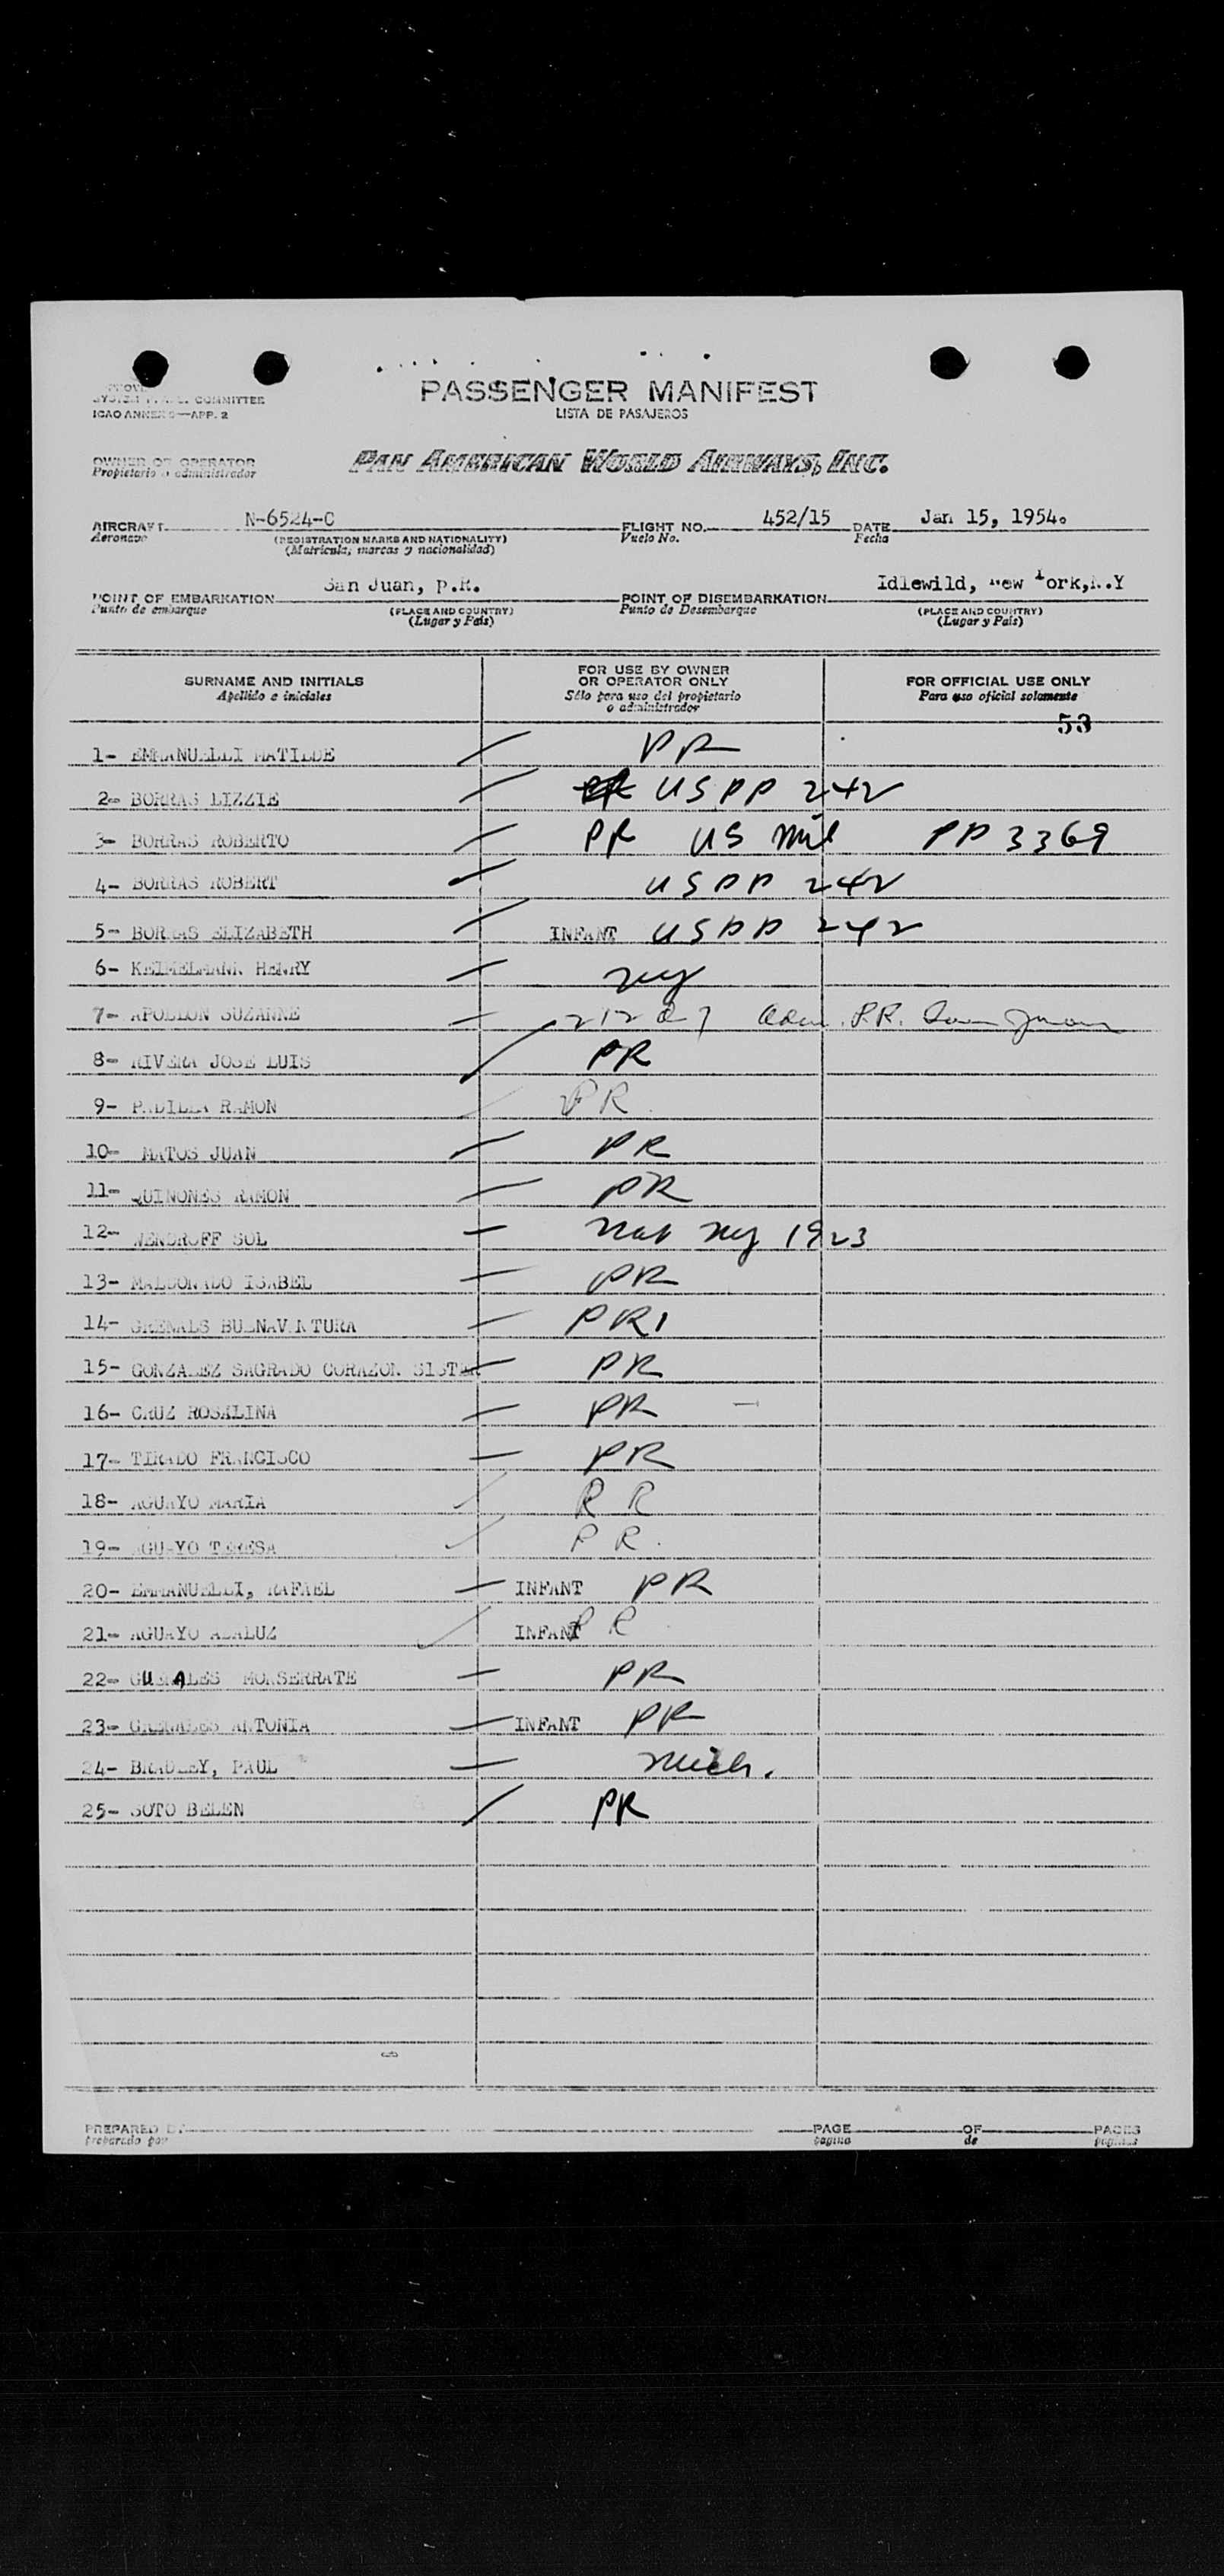 PASSENGER MANIFEST
LISTA DE PASAJEROS
COMMITTEE
ICAO ANNEX 9—APP. 2
OWNER OR OPERATOR
Propietario o administrador
PAN AMERICAN WORLD AIRWAYS, INC.
AIRCRAFT N-6524-C FLIGHT NO. 452/15 DATE Jan 15, 1954.
Aeronave (REGISTRATION MARKS AND NATIONALITY) Vuelo No. Fecha
(Matricula, marcas y nacionalidad)
POINT OF EMBARKATION San Juan, P.R. POINT OF DISEMBARKATION Idlewild, New York, N.Y
Punto de embarque (PLACE AND COUNTRY) Punto de Desembarque (PLACE AND COUNTRY)
(Lugar y País) (Lugar y País)
SURNAME AND INITIALS FOR USE BY OWNER OR OPERATOR ONLY FOR OFFICIAL USE ONLY
Apellido e iniciales Sólo para uso del propietario o administrador Para uso oficial solamente
53
1- EMMANUELLI MATILDE PR
2- BORRAS LIZZIE PR USPP 242
3- BORRAS ROBERTO PR US mil PP 3369
4- BORRAS ROBERT USPP 242
5- BORRAS ELIZABETH INFANT USPP 242
6- KEIMELMANN HENRY ny
7- APOLLON SUZANNE adm. P.R. San Juan
8- RIVERA JOSE LUIS PR
9- PADILLA RAMON PR
10- MATOS JUAN PR
11- QUINONES RAMON PR
12- WENDROFF SOL nat ny 1923
13- MALDONADO ISABEL PR
14- GRENALS BUENAVENTURA PR
15- GONZALEZ SAGRADO CORAZON SISTER PR
16- CRUZ ROSALINA PR
17- TIRADO FRANCISCO PR
18- AGUAYO MARIA PR
19- AGUAYO TERESA PR
20- EMMANUELLI, RAFAEL INFANT PR
21- AGUAYO ADALUZ INFANT PR
22- MONSERRATE PR
23- GRENALES ANTONIA INFANT PR
24- BRADLEY, PAUL mich.
25- SOTO BELEN PR
PREPARED BY PAGE OF PAGES
preparado por página de páginas